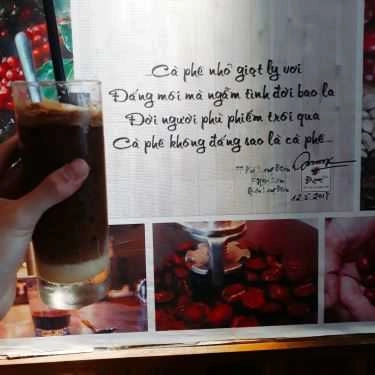 Cà phê nhỏ giọt ly vơi
Đắng môi mà ngẫm tình đời bao la
Đời người phù phiếm trôi qua
Cà phê không đắng sao là cà phê...
12.5.2017